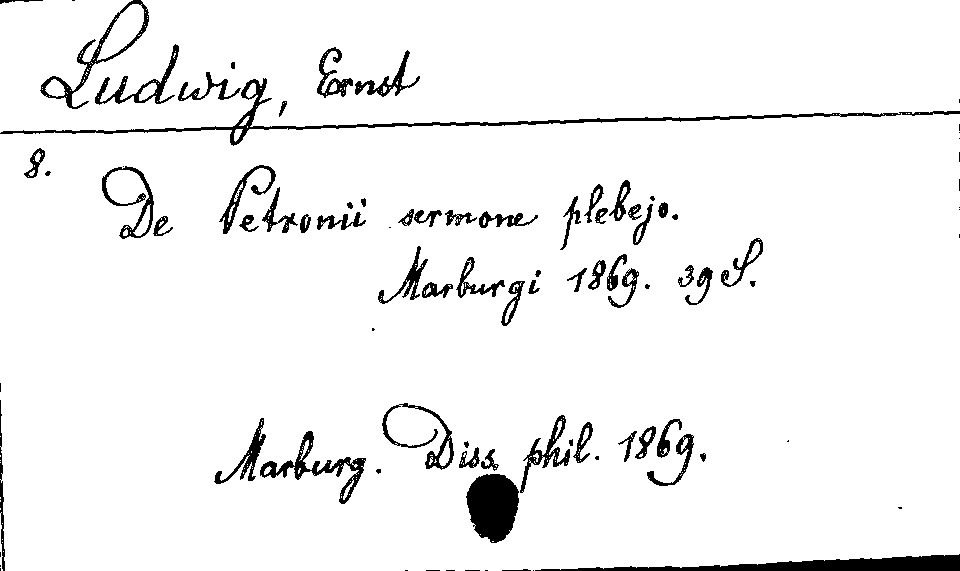 Ludwig, Ernst
8.
De Petronii sermone plebejo.
Marburgi 1869. 39 S.
Marburg. Diss. phil. 1869.